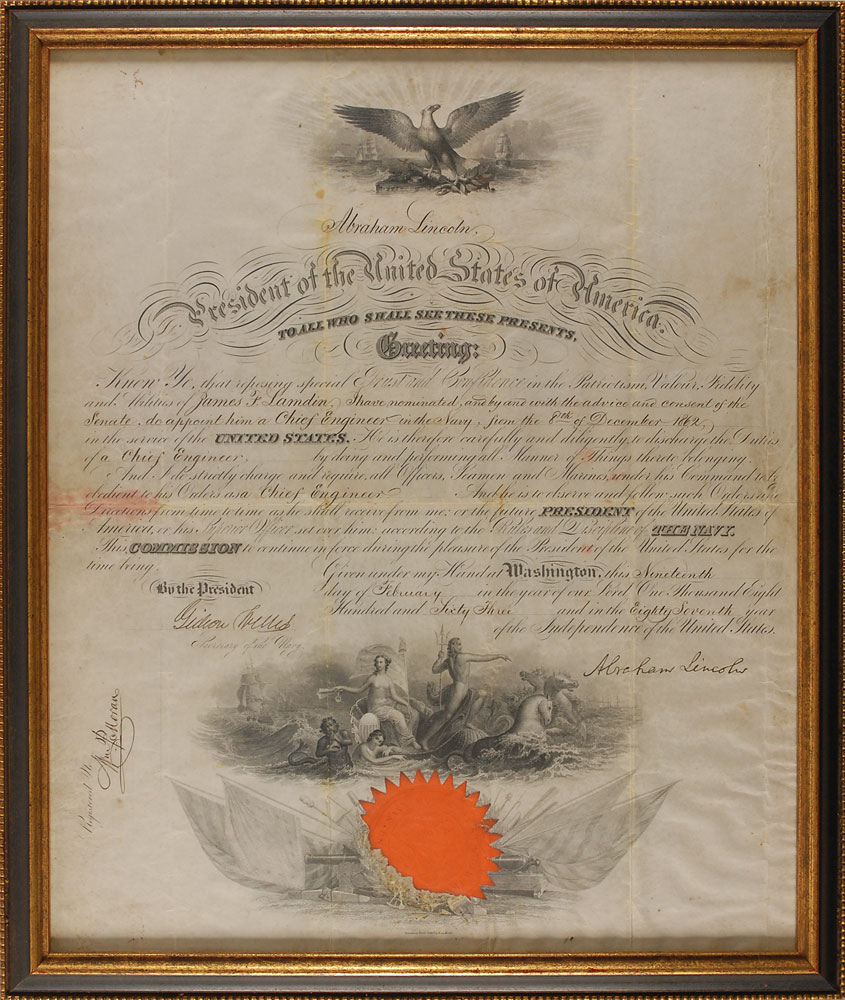 Abraham Lincoln.
President of the United States of America.
TO ALL WHO SHALL SEE THESE PRESENTS,
Greeting:
Know Ye, that reposing special Trust and Confidence in the Patriotism, Valour, Fidelity
and Abilities of James F Lamdin, I have nominated, and by and with the advice and consent of the
Senate, do appoint him a Chief Engineer in the Navy, from the 8th of December 1862,
in the service of the UNITED STATES. He is therefore carefully and diligently to discharge the Duties
of a Chief Engineer, by doing and performing all Manner of Things thereto belonging.
And I do strictly charge and require all Officers, Seamen and Marines, under his Command to be
obedient to his Orders as a Chief Engineer And he is to observe and follow such Orders and
Directions from time to time as he shall receive from me, or the future PRESIDENT of the United States of
America, or his Superior Officer set over him, according to the Rules and Discipline of THE NAVY.
This COMMISSION to continue in force during the pleasure of the President of the United States for the
time being.
Given under my Hand at Washington, this Nineteenth
By the President
day of February in the year of our Lord One Thousand Eight
Hundred and Sixty Three and in the Eighty Seventh year
Gideon Welles
of the Independence of the United States.
Secretary of the Navy.
Abraham Lincoln
Registered